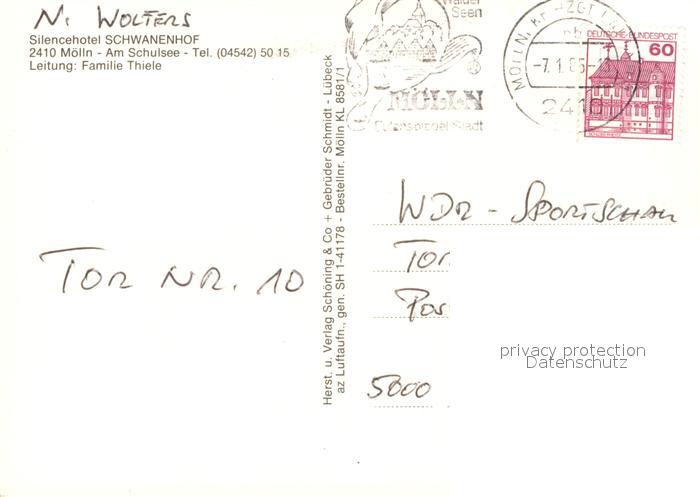 N. WOLTERS
Silencehotel SCHWANENHOF
2410 Mölln - Am Schulsee - Tel. (04542) 50 15
Leitung: Familie Thiele
TOR NR. 10
Herst. u. Verlag Schöning & Co + Gebrüder Schmidt - Lübeck
az Luftaufn., gen. SH 1-41178 - Bestellnr. Mölln KL 8581/1
Wälder
Seen
MÖLLN
Eulenspiegel-Stadt
MÖLLN
2410
DEUTSCHE BUNDESPOST
60
WDR - SPORTSCHAU
TOR
POS
5000
privacy protection
Datenschutz